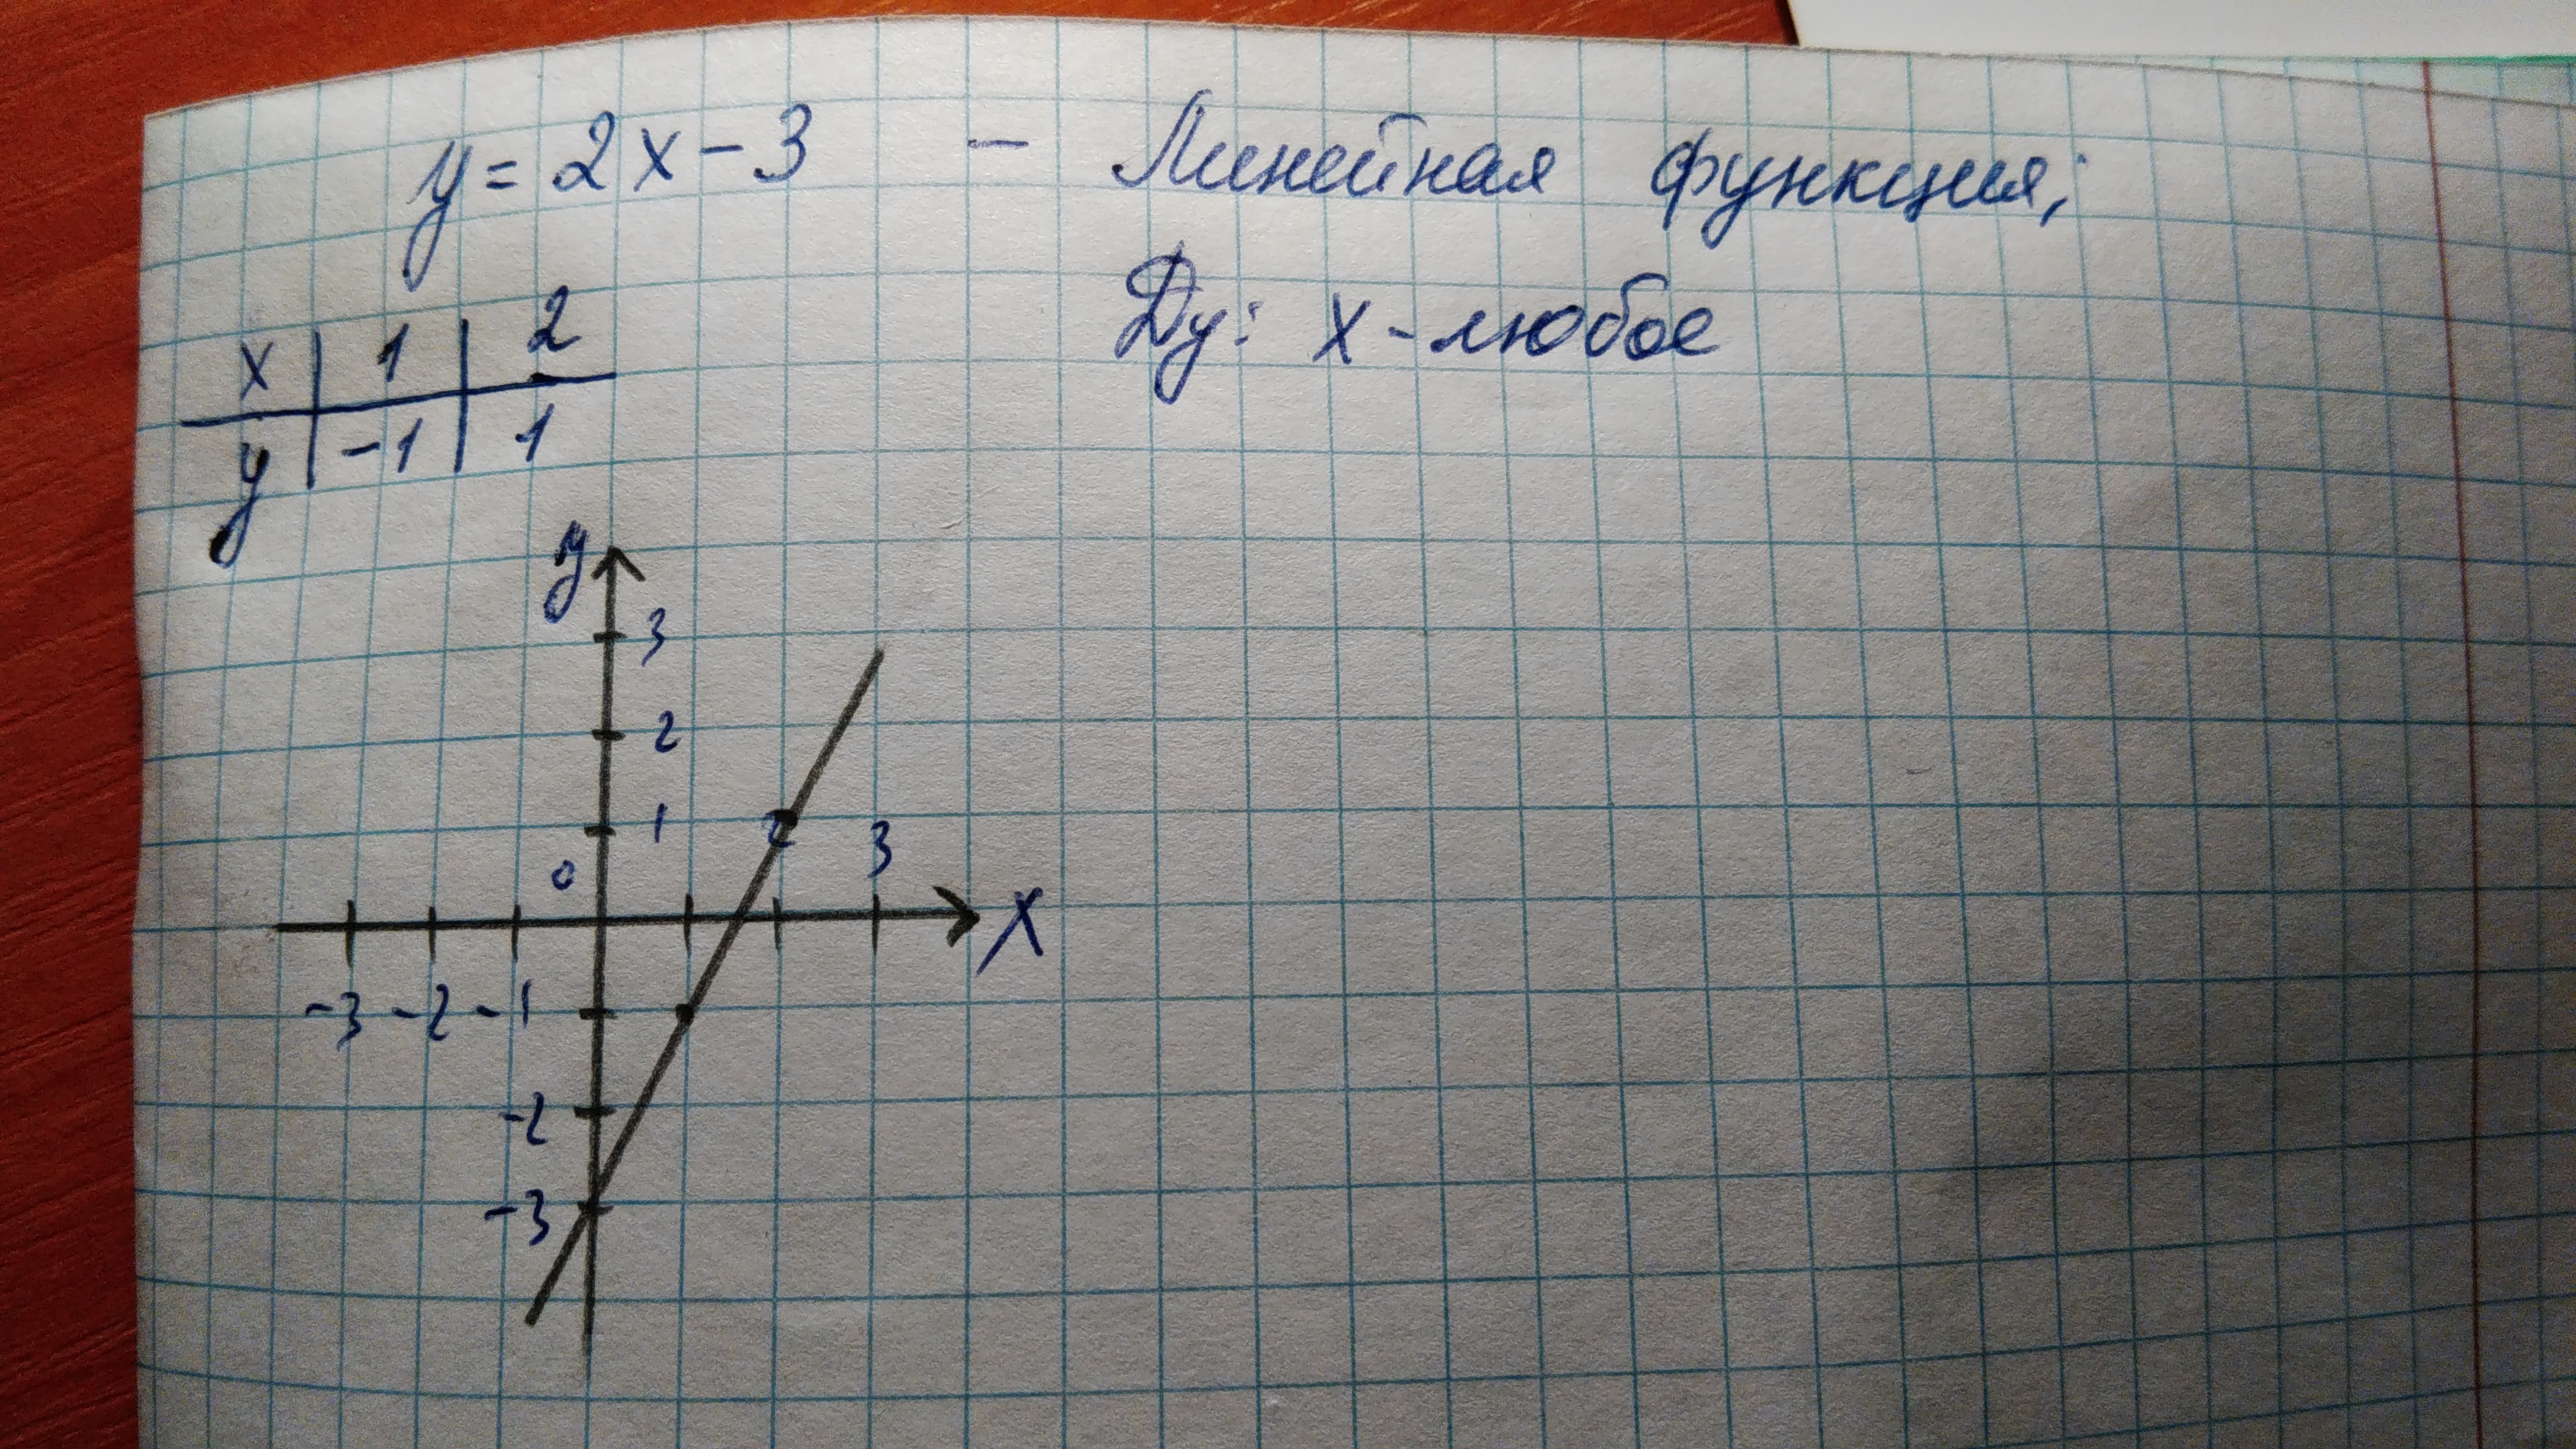 y = 2x - 3 - Линейная функция;
Dy: x - любое
x | 1 | 2
y | -1 | 1
y
3
2
1 2 3
0
x
-3 -2 -1
-2
-3